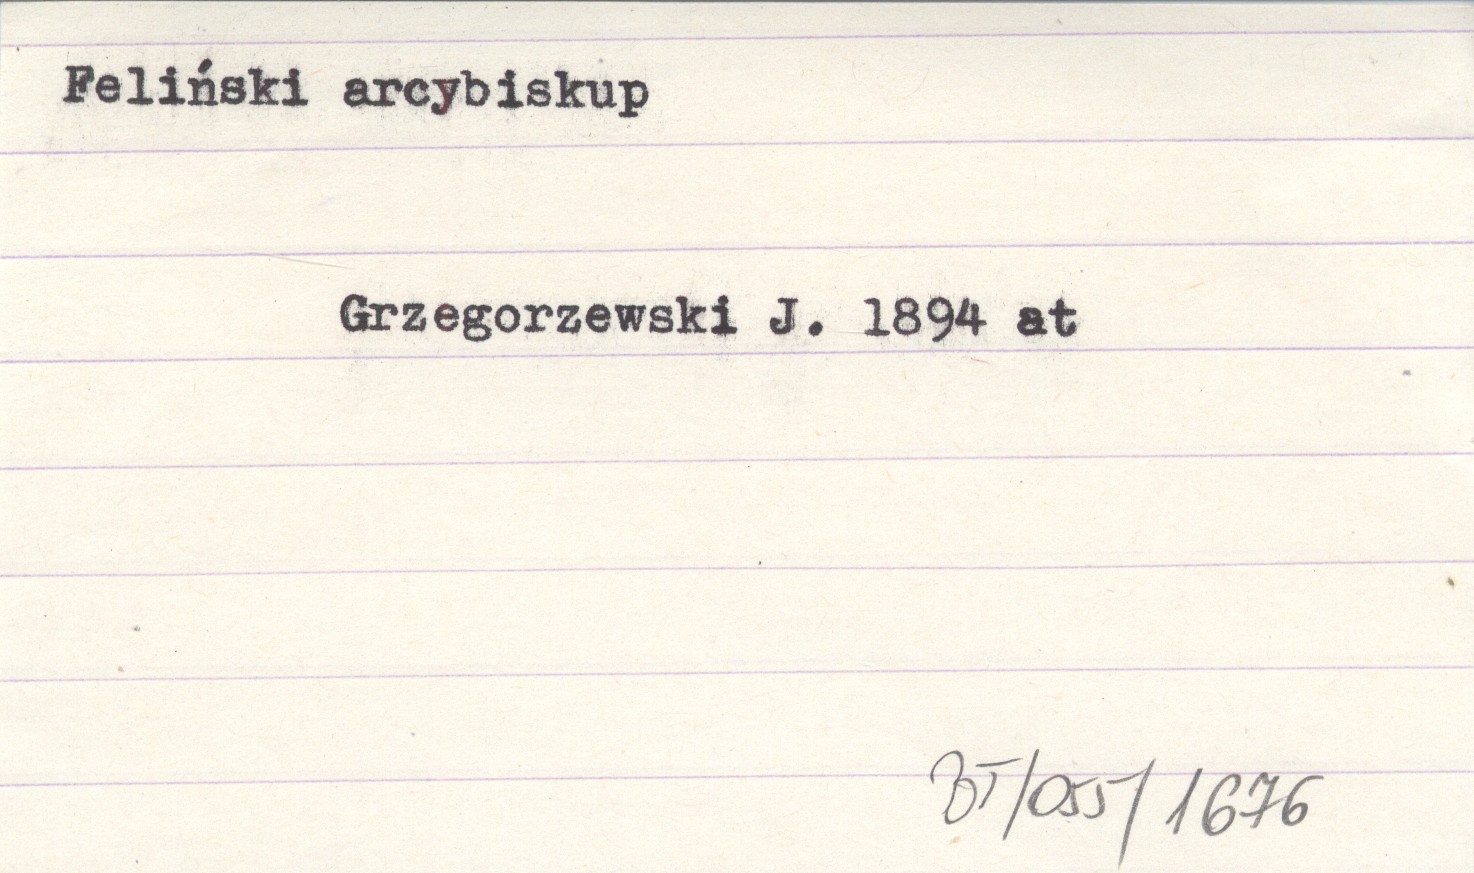 Feliński arcybiskup
Grzegorzewski J. 1894 at
BT/055/1676